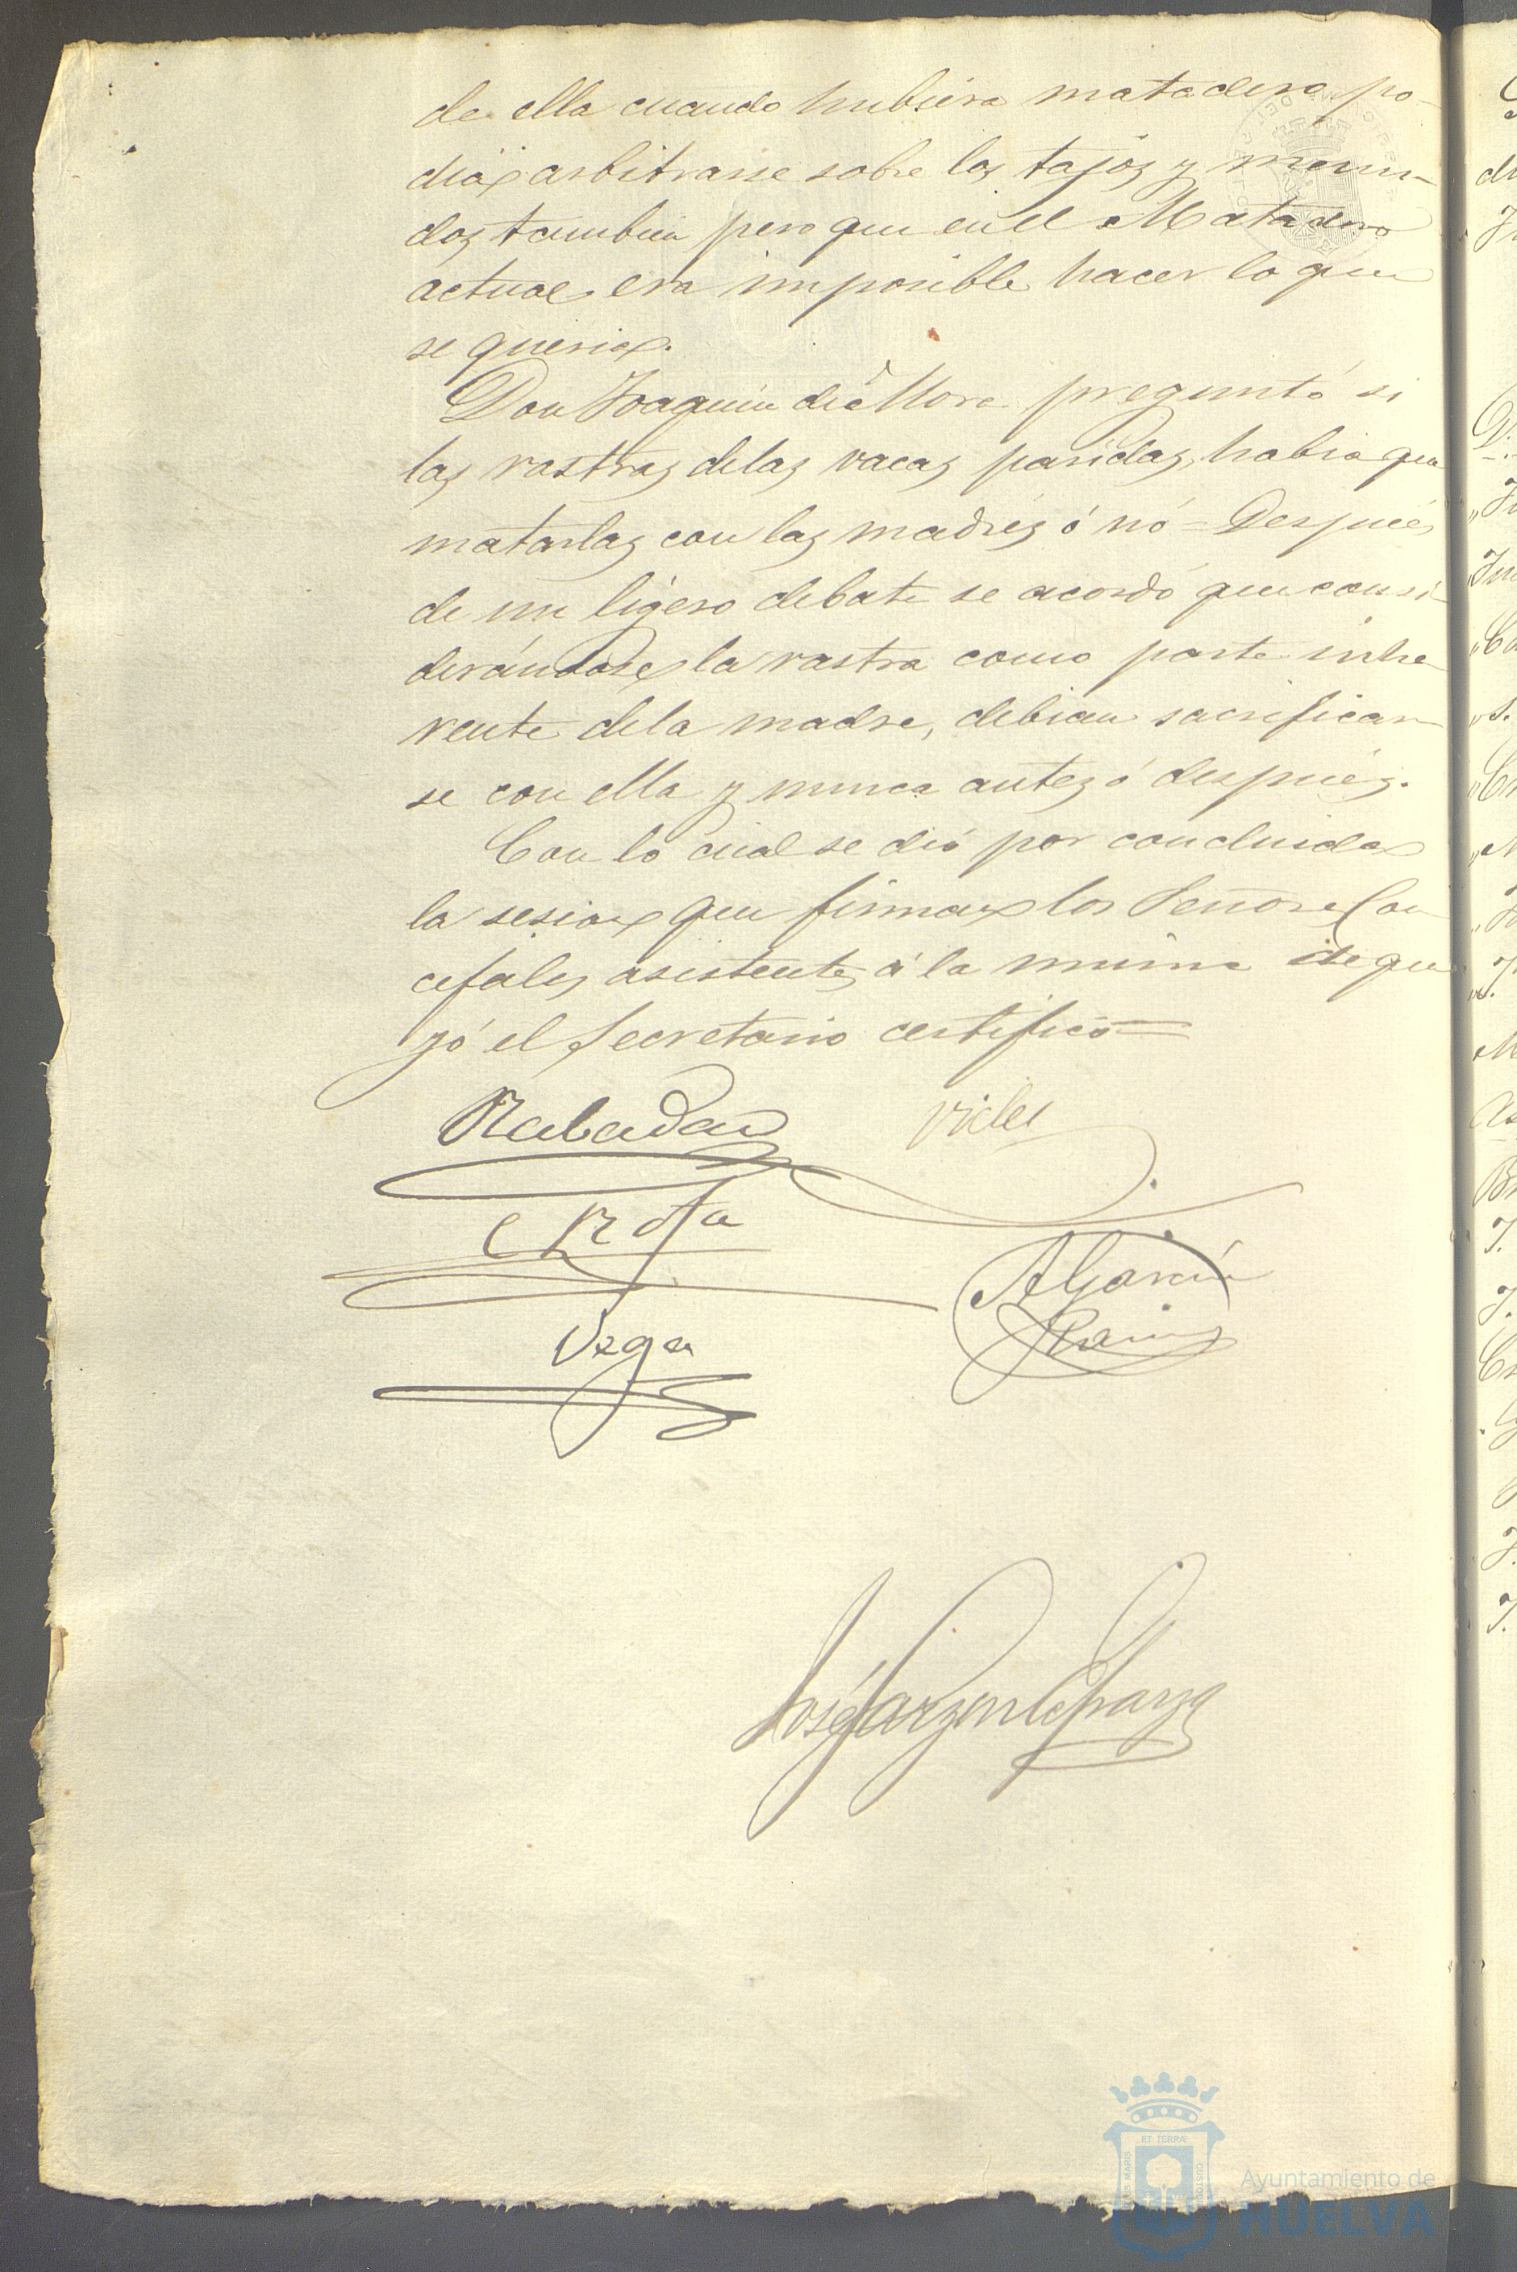 de ella cuando hubiera matadero po-
dia arbitrarse sobre los tajos y menu-
dos tambien pero que en el Matadero
actual era imposible hacer lo que
se queria.
Don Joaquin de Mora preguntó si
las rastras delas vacas paridas, habia que
matarlas con las madres ó nó = Despues
de un ligero debate se acordó que consi-
derándose la rastra como parte inhe-
rente dela madre, debian sacrificar-
se con ella y nunca antes ó despues.
Con lo cual se dió por concluida
la sesion que firman los Señores Con-
cejales asistentes á la misma de que
yó el Secretario certifico =
Rabadan
Rota
A García
Ramos
Vega
José Garzon
Ayuntamiento de
HUELVA